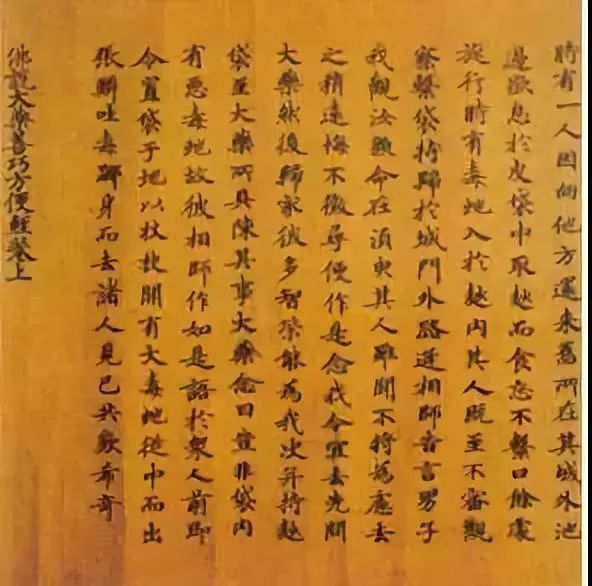 時有一人因向他方還來舊所在其城外池
邊欲息於皮袋中取麨而食忘不繫口餘處
旋行時有毒虵入於麨內其人既至不審觀
察繫袋持歸於城門外路逢相師告言男子
我觀汝顏命在須臾其人雖聞不將為慮去
之稍遠悔不徵尋便作是念我今宜去先問
大藥然後歸家彼多智策能為我決并持麨
袋至大藥所具陳其事大藥念曰豈非袋內
有惡毒虵故彼相師作如是語於眾人前即
令置袋于地以杖披開有大毒虵從中而出
張吐毒擲身而去諸人見已共歎希奇
佛說大藥善巧方便經卷上